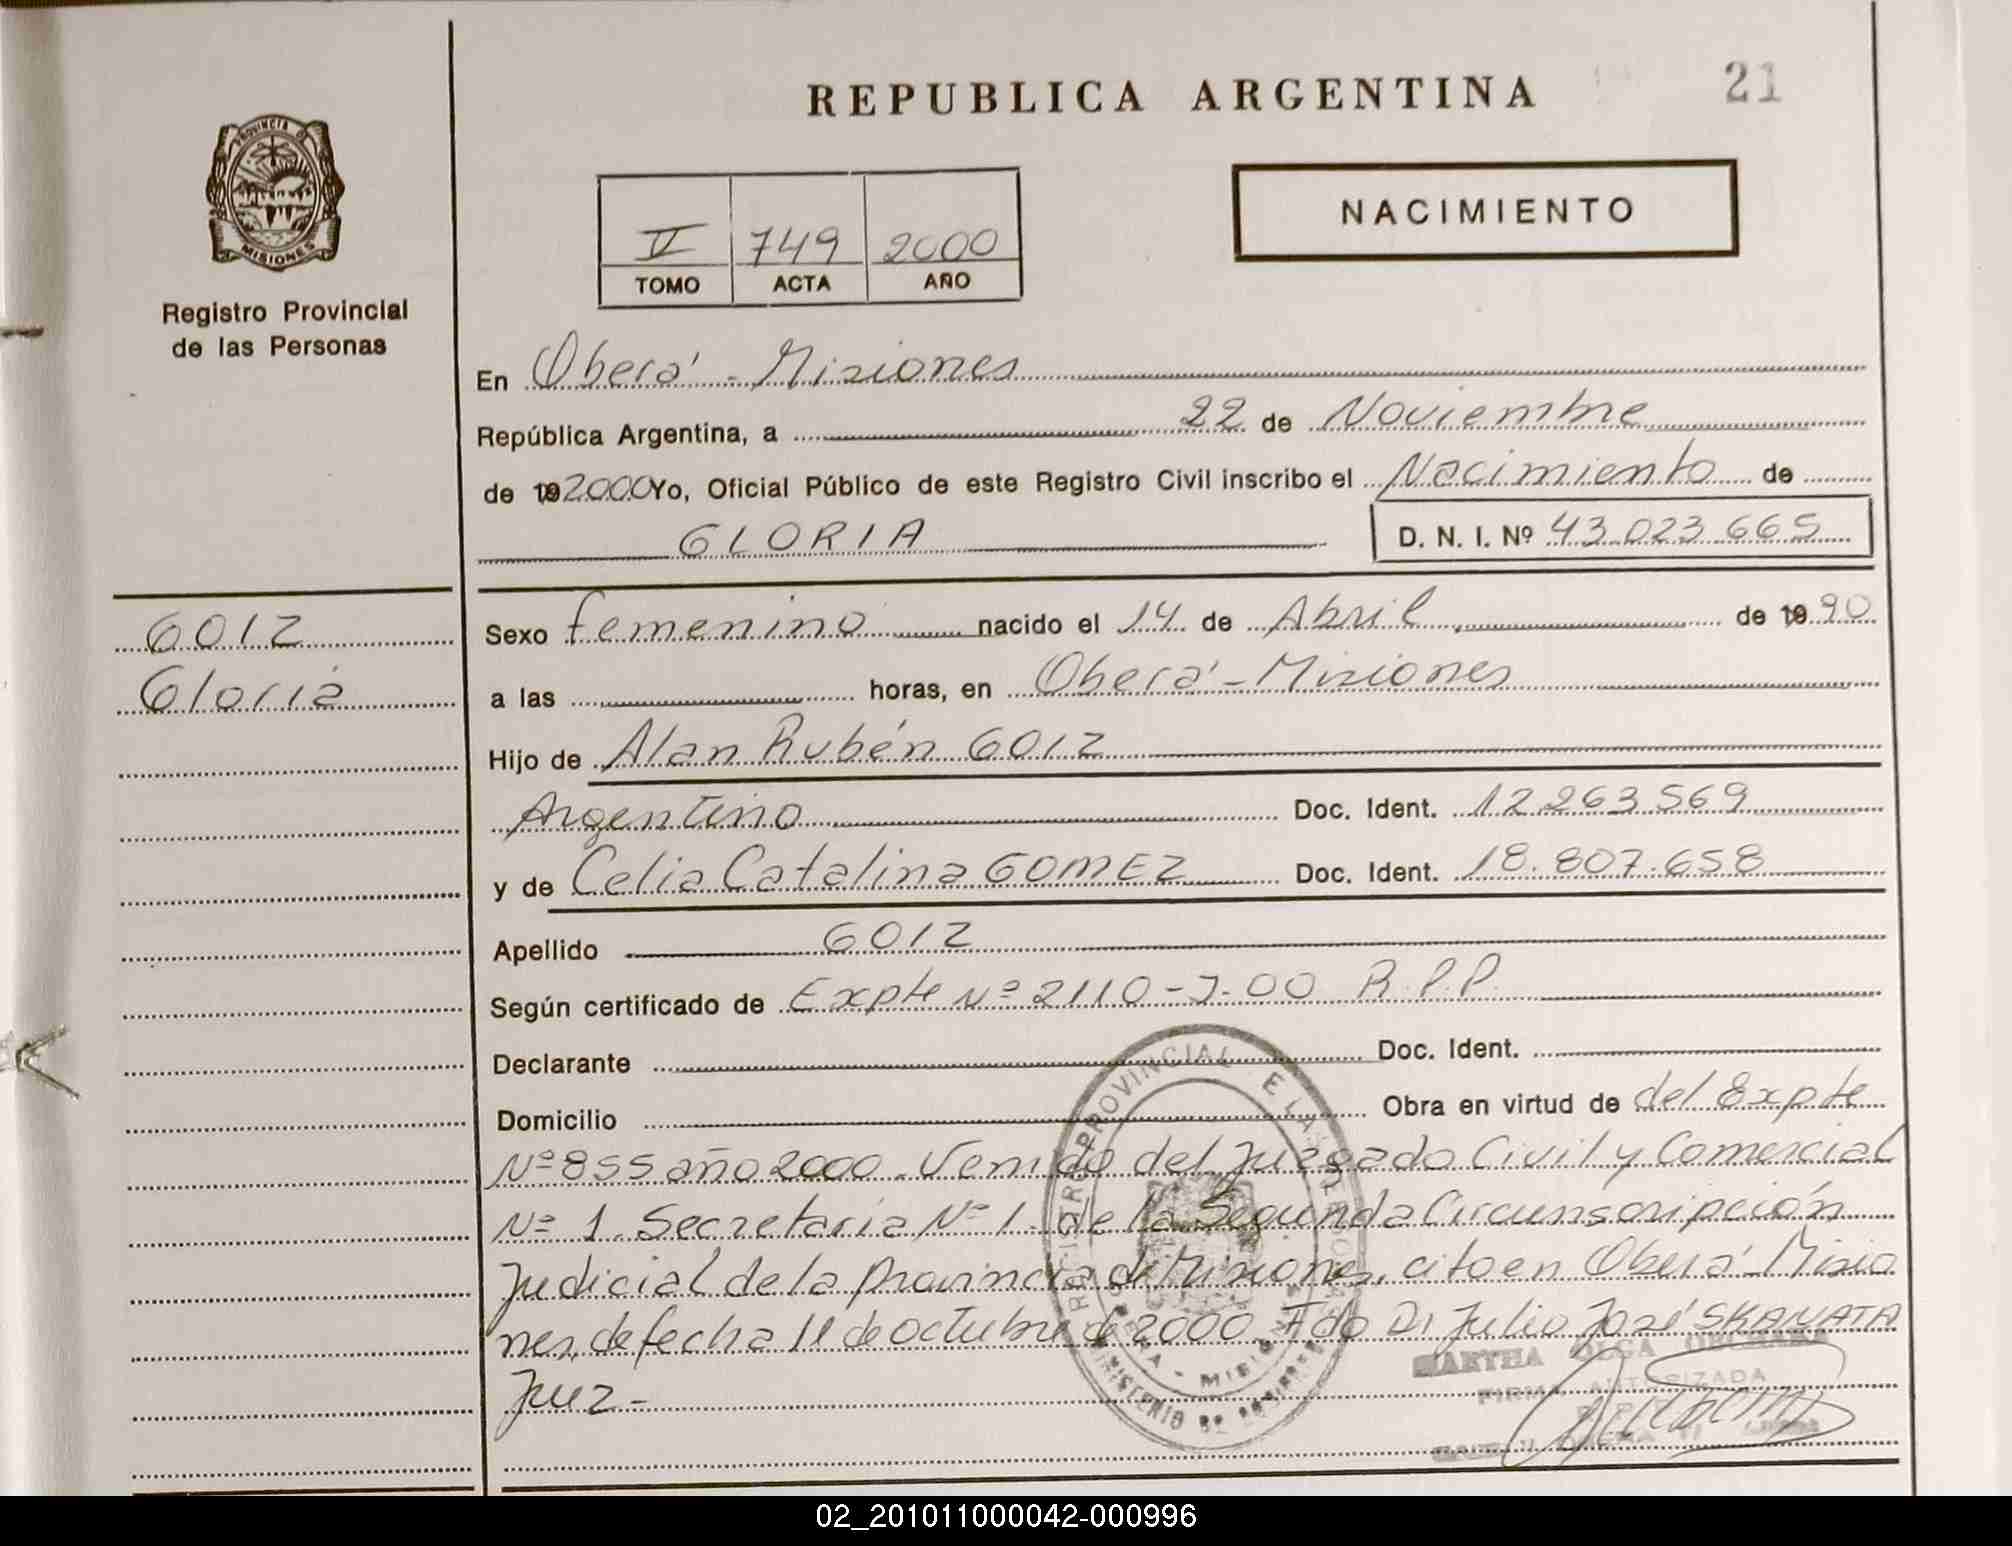 REPUBLICA ARGENTINA
21
PROVINCIA DE
MISIONES
Registro Provincial
de las Personas
V 749 2000
TOMO ACTA AÑO
NACIMIENTO
En Oberá - Misiones
República Argentina, a 22 de Noviembre
de 19 2000 Yo, Oficial Público de este Registro Civil inscribo el Nacimiento de
GLORIA D. N. I. Nº 43.023.665
GOIZ
Gloria
Sexo femenino nacido el 14 de Abril de 19 90
a las horas, en Oberá - Misiones
Hijo de Alan Rubén GOIZ
Argentino Doc. Ident. 12.263.569
y de Celia Catalina GOMEZ Doc. Ident. 18.807.658
Apellido GOIZ
Según certificado de Expte Nº 2110-J-00 R.P.P.
Declarante Doc. Ident.
Domicilio Obra en virtud de del Expte
Nº 855 año 2000. Venido del Juzgado Civil y Comercial
Nº 1. Secretaría Nº 1. de la Segunda Circunscripción
Judicial de la provincia de Misiones, cito en Oberá - Misio
nes, de fecha 11 de octubre de 2000. Fdo Dr Julio José SKANATA
Juez -
MARTHA OLGA
FIRMA AUTORIZADA
02_201011000042-000996